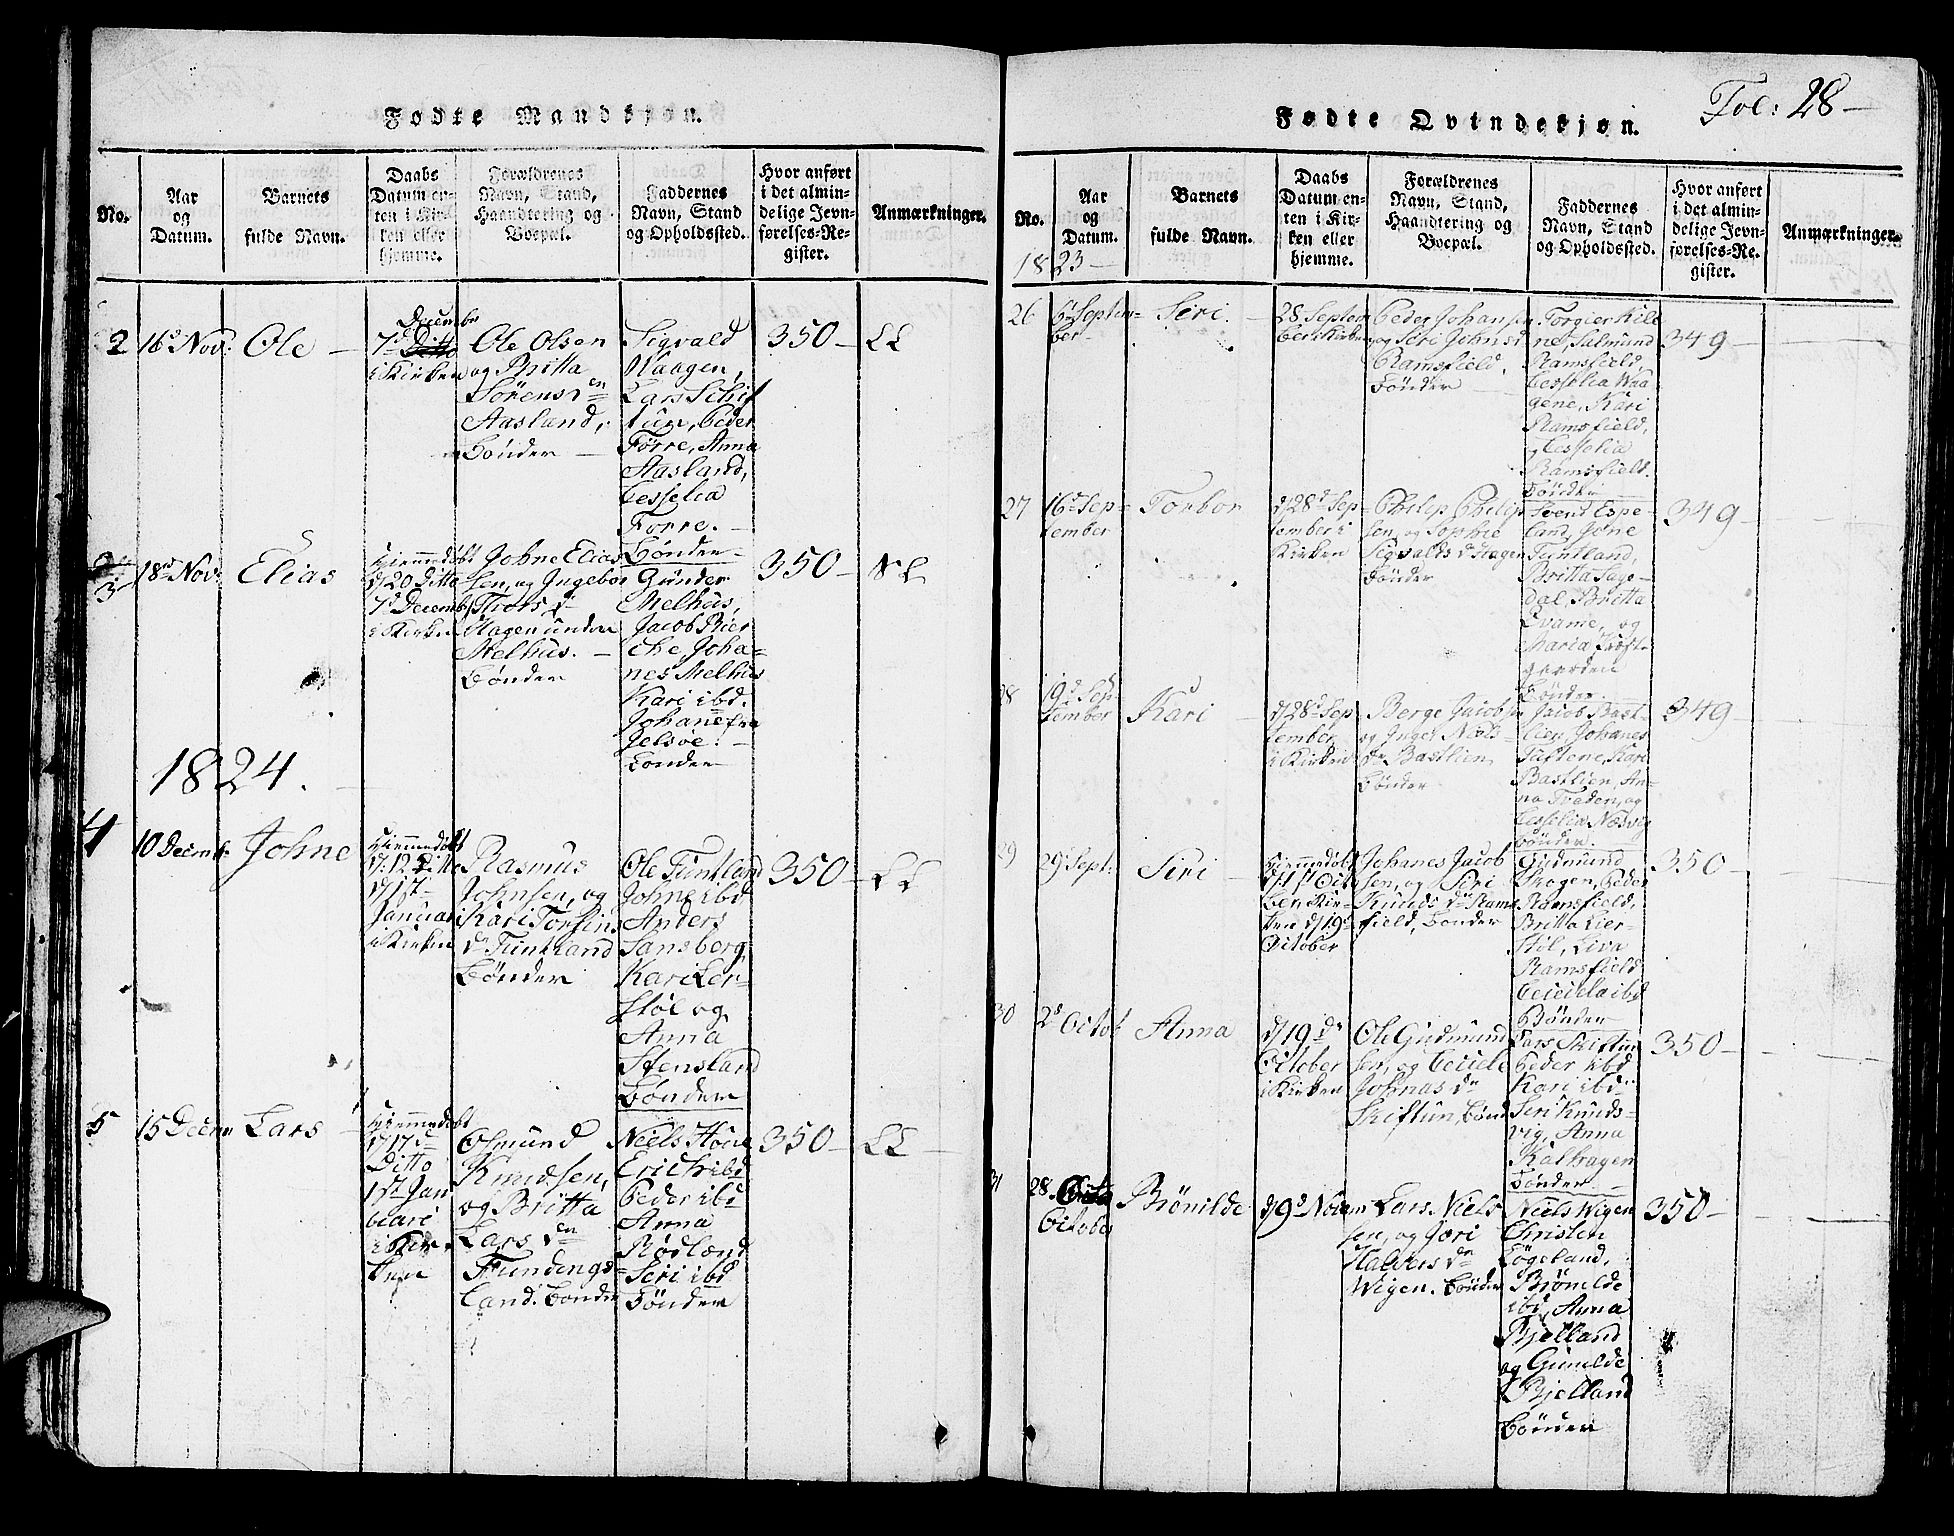 Fødte Mandkjøn.
No.
Aar
og
Datum.
Barnets
fulde Navn.
Daabs
Datum en-
ten i Kir-
ken eller
hjemme.
Forældrenes
Navn, Stand,
Haandtering og
Boepæl.
Faddernes
Navn, Stand
og Opholdssted.
Hvor anført
i det almin-
delige Jevn-
førelses-Re-
gister.
Anmærkninger.
2
16d Nov:
Ole
Decembr
7d Ditto
i Kirken
Ole Olsen
og Britta
Sørensd
Aasland,
Bønder
Sigvald
Waagen,
Lars Schif
tun, Peder
Førre, Anna
Aasland,
Cesselia
Førre.
Bønder
350
LL
3
18d Nov:
Elias
Hiemmedøbt
d/20 Ditto
7d Decembr
i Kirken
Johne Elias
sen, og Ingebor
Thors d
Hagen under
Melhus.
Bønder
Gunder
Melhus,
Jacob
Joha-
nes Melhus
Kari ibd.
Johane fra
Jelsøe.
Bønder
350
1824.
4
10 Decemb:
Johne
Hiemmedøbt
d/12 Ditto
d/1st
Januari
i Kirken
Rasmus
Johnsen, og
Kari Torfins
dr Tuntland
Bønder
Ole Tuntland
Johne ibd
Anders
Sansberg,
Kari Ler-
støl og
Anna
Stensland
Bønder
350
LL
5
15 Decem
Lars
Hiemmedøbt
d/17d
Ditto
1st Jan
uari
i Kir
ken
Osmund
Knudsen,
og Britta
Lars den
Fundings-
land. Bønder
Niels Høie
Erich ibd
Peder ibd
Anna
Rødland
Seri ibd
Bønder
350
LL
Fødte Qvindekjøn.
Fol: 28
No.
Aar
og
Datum.
1823
Barnets
fulde Navn.
Daabs
Datum en-
ten i Kir-
ken eller
hjemme.
Forældrenes
Navn, Stand,
Haandtering og
Boepæl.
Faddernes
Navn, Stand
og Opholdssted.
Hvor anført
i det almin-
delige Jevn-
førelses-Re-
gister.
Anmærkninger.
26
Septem-
ber
Siri
28 Septem
ber i Kirken
Peder Johansen
og Seri Johns
Ramsfield,
Bønder
Torgier Kile
ne, Salmund
Ramsfield,
Cesselia Waa-
gene, Kari
Ramsfield,
og Cesselia
Ramsfield.
Bønder
349
27
16d Sep-
tember
Torbor
d/28d Sep-
tember i
Kirken
Philip Philip
sen, og Sophie
Sigvalds dr Hagen
Bønder
Svend Espe-
land, Jone
Tuntland,
Britta Sage-
dal, Britta
Qvame, og
Maria
gaarden
Bønder.
349
28
19d Sep-
tember
Kari
d/28d Sep
tember
i Kirken
Berge Jacobsen
og Inger Niels
dr Bastlien
Bønder
Jacob Bast-
lien, Johanes
Tuftene, Kari
Bastlien, An-
na Tveden, og
Cesselia Næsvig
Bønder.
349
29
29d Sept:
Siri
Hiemmedøbt
d/1st Octo
ber i Kir-
ken d/19d
October
Johanes Jacob
sen, og Seri
Knuds dr Rams
field, Bønder
Gudmund
Skogen, Peder
Ramsfield,
Britta Lier-
stil, Liva
Ramsfield
Ceciela ibd
Bønder
350
30
2d Octob
Anna
d/19de
October
i Kirken
Ole Gudmund
sen, og Ceciele
Johnas dr
Skiftun, Bønd
Lars Skiftun
Peder ibd
Kari ibd
Seri Knuds-
vig, Anna
Kalhagen
Bønder
350
31
28
October
Brønilde
d/9d Novem
Lars Niels
sen, og Jøri
Halvers dr
Wigen. Bønder
Niels Wigen
Christen
Løgeland,
Brønilde
ibd, Anna
Bjelland
og Gunilde
Bjelland
Bønder
350